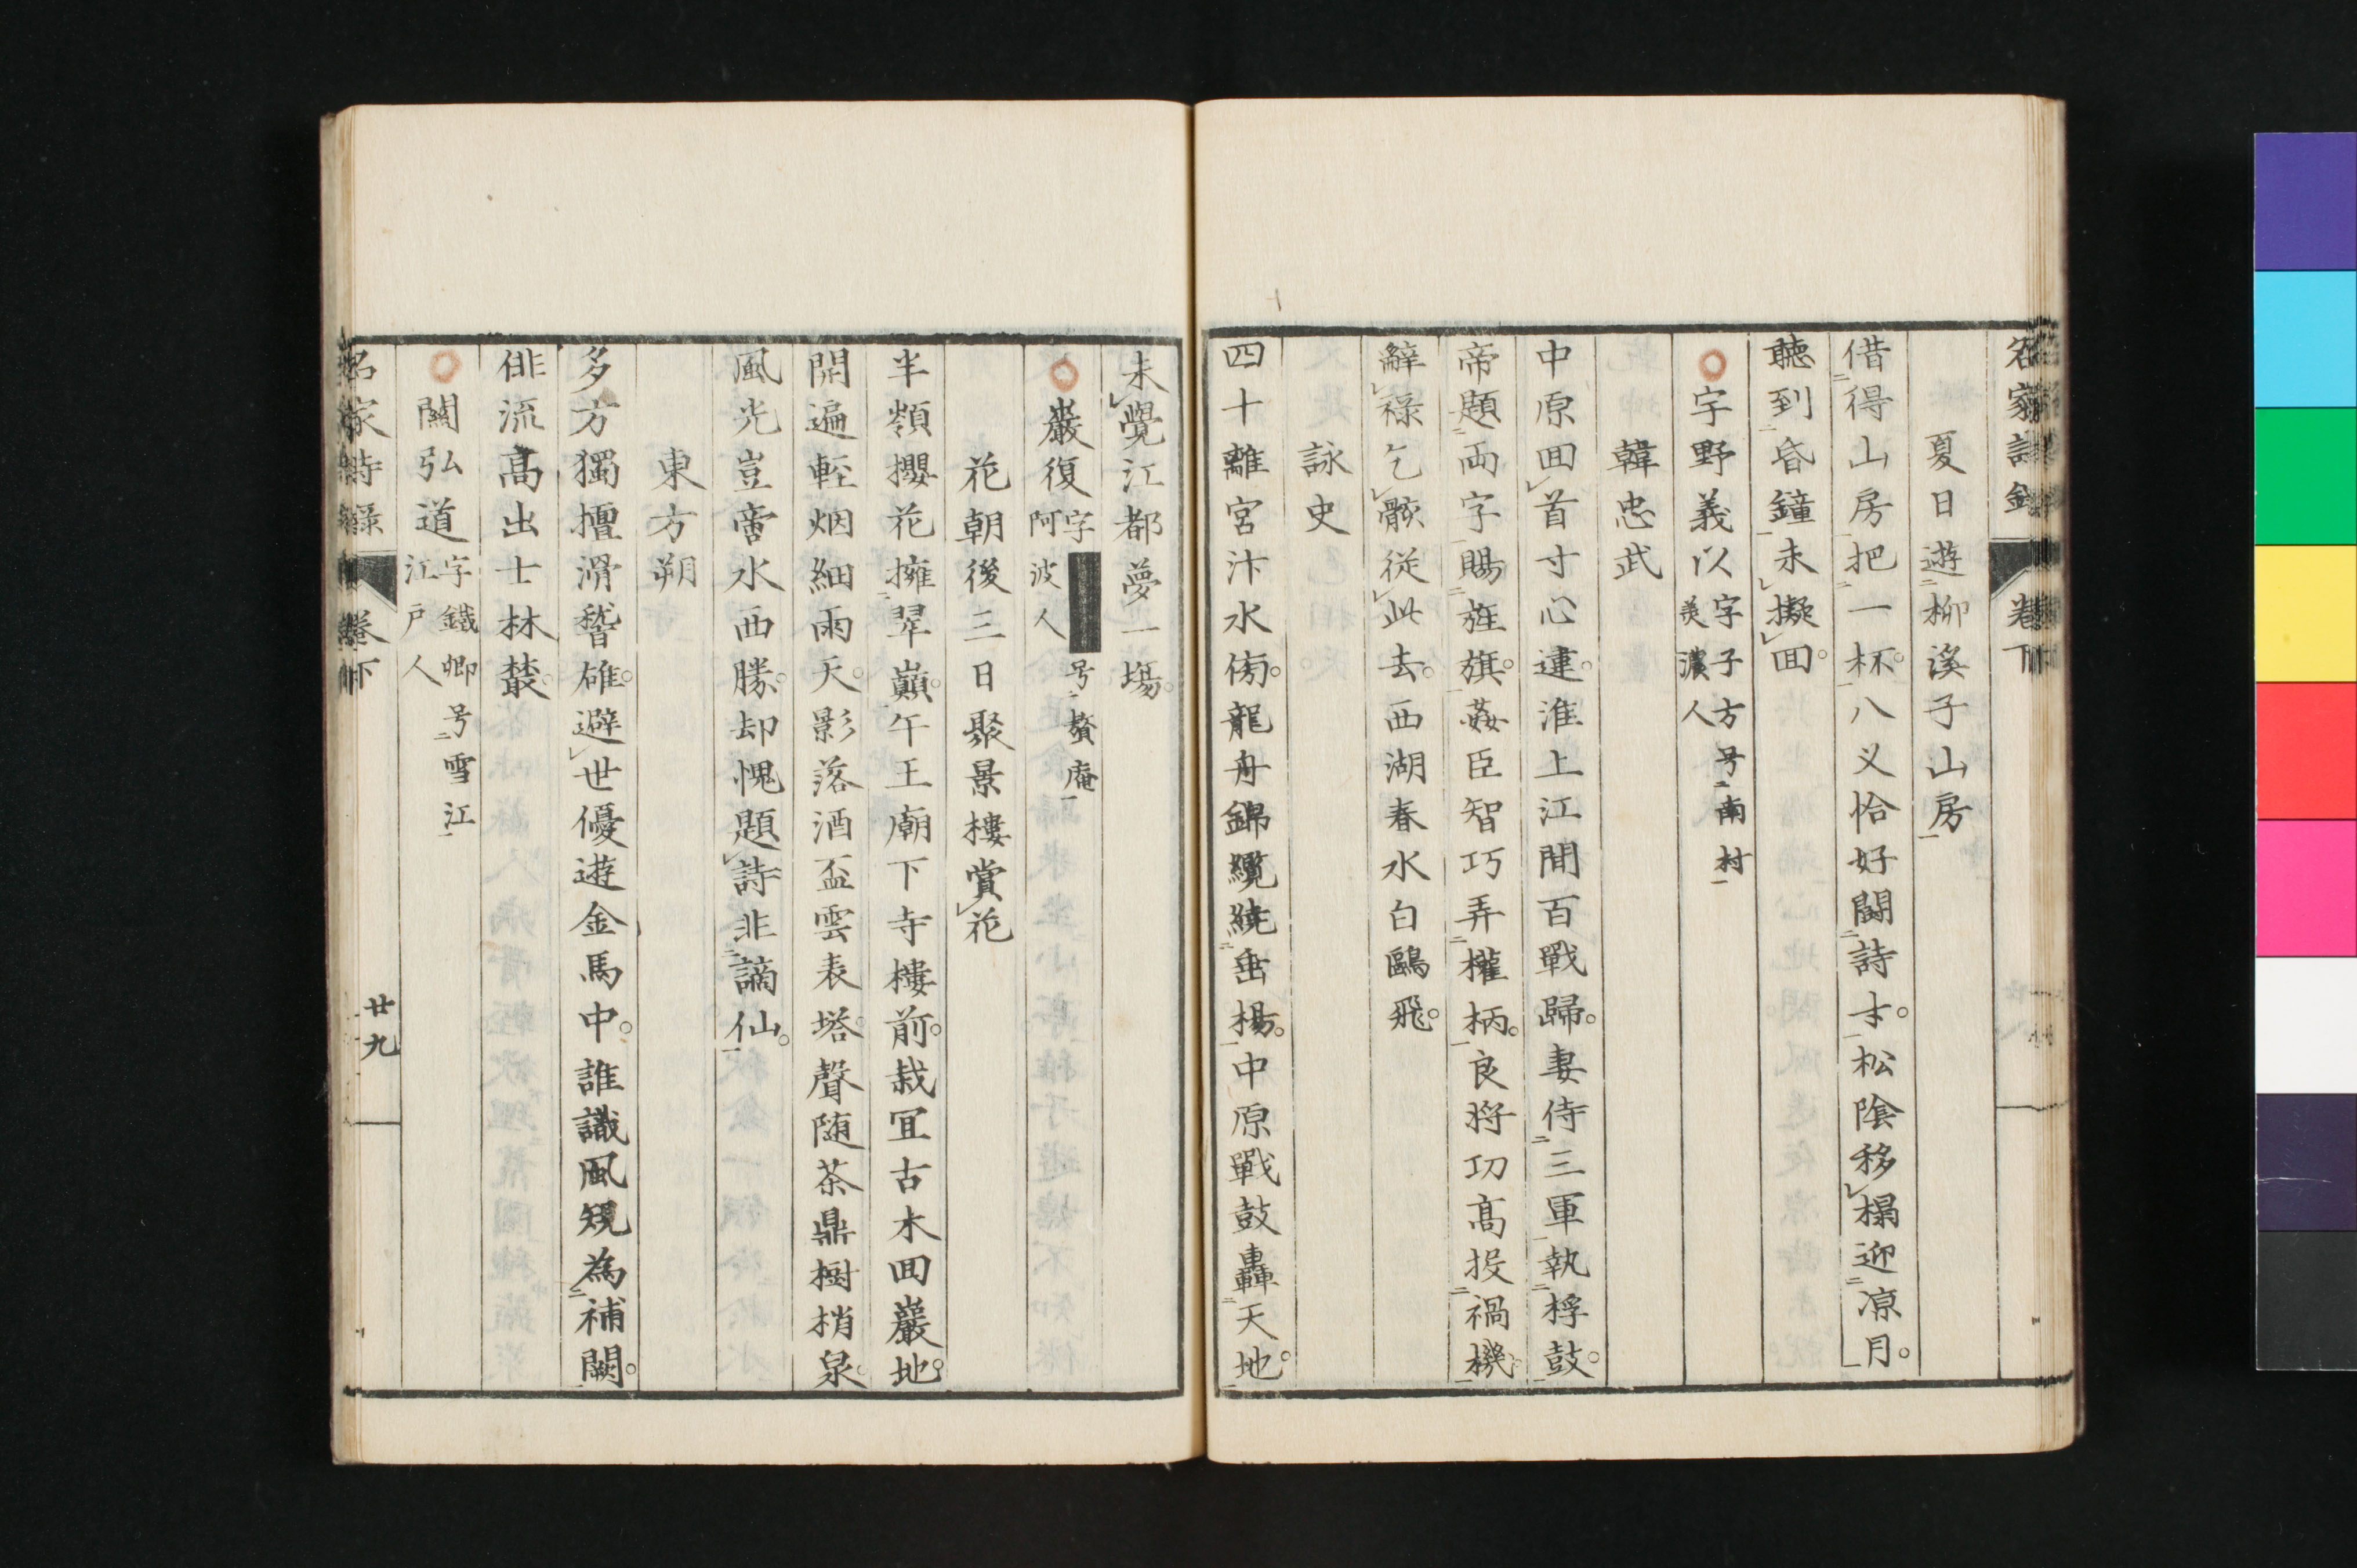 名家詩錄 卷下
夏日遊柳溪子山房
借得山房把一杯八义恰好鬪詩才松陰移榻迎凉月
聽到昏鐘未擬囬
宇野義以 字子方号南村 美濃人
韓忠武
中原囬首寸心違淮上江間百戰歸妻侍三軍執桴鼓
帝題両字賜旌旗姦臣智巧弄權柄良将功髙投禍機
辭祿乞骸従此去西湖春水白鷗飛
詠史
四十離宮汴水傍龍舟錦纜繞垂楊中原戰鼓轟天地
未覺江都夢一塲
巖復 字 号贅庵 阿波人
花朝後三日聚景樓賞花
半嶺攖花擁翠巓午王廟下寺樓前栽冝古木囬巖地
開遍軽烟細雨天影落酒盃雲表塔聲随茶鼎樹梢泉
風光豈啻水西勝却愧題詩非謫仙
東方朔
多方獨擅滑稽雄避世優遊金馬中誰識風規為補闕
俳流髙出士林叢
關弘道 字鐵卿号雪江 江戸人
名家詩録 卷下 廿九